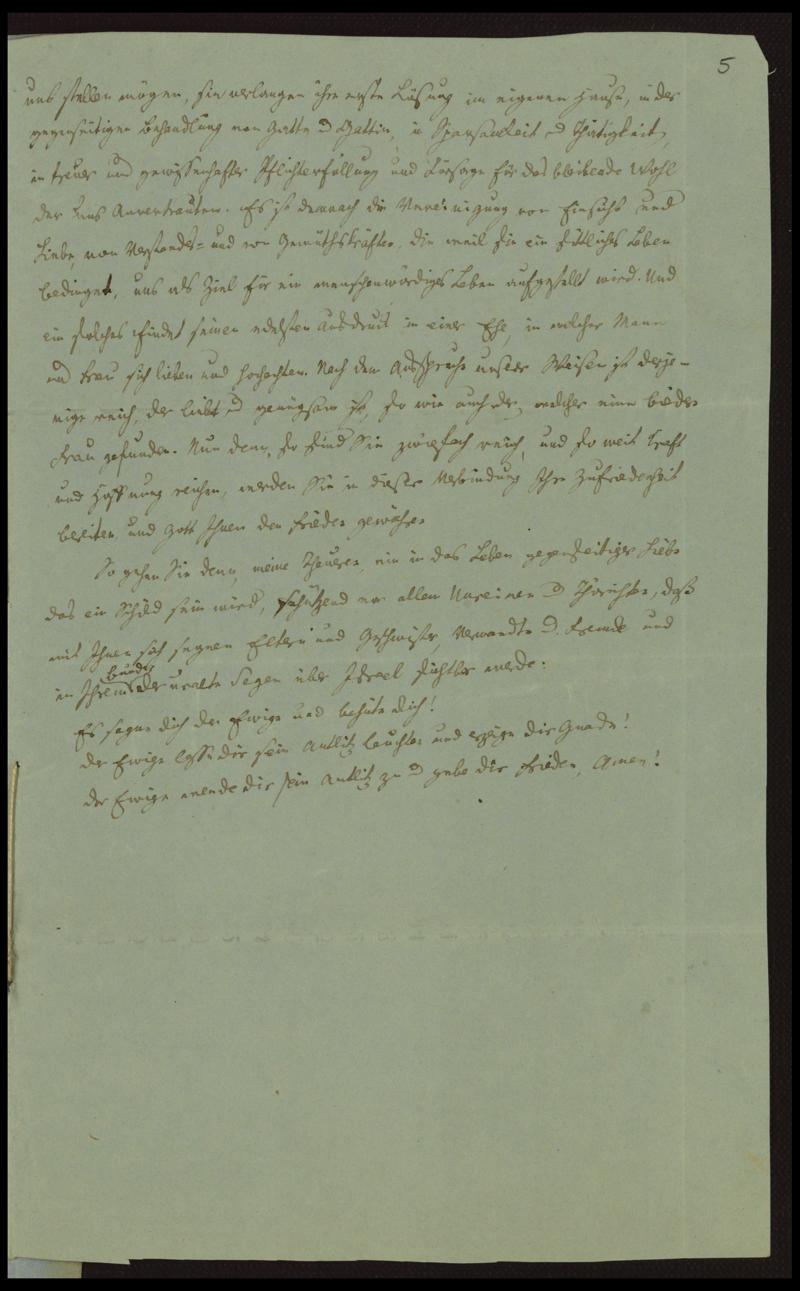 5
uns stellen mögen, sie verlangen ihre erste Lösung im eigenen Hause, in der
gegenseitigen Behandlung von Gatte u Gattin, in Sparsamkeit u Thätigkeit,
in treuer und gewissenhafter Pflichterfüllung und Fürsorge für das bleibende Wohl
der uns Anvertrauten. Es ist demnach die Vereinigung von Einsicht und
Liebe, von Verstandes- und von Gemüthskräften, die weil sie ein sittliches Leben
bedinget, uns als Ziel für ein menschenwürdiges Leben aufgestellt wird. Und
ein solches findet seinen edelsten Ausdruck in einer Ehe, in welcher Mann
und Frau sich lieben und hochachten. Nach dem Ausspruche unserer Weisen ist derje-
nige reich, der liebt u genügsam ist, so wie auch der, welcher eine biedere
Frau gefunden. Nun denn, so sind Sie zwiefach reich, und so weit Kraft
und Hoffnung reichen, werden Sie in dieser Verbindung Ihre Zufriedenheit
bereiten und Gott Ihnen den Frieden gewähren
So gehen Sie denn, meine Theueren, ein in das Leben gegenseitiger Liebe
das ein Schild sein wird, schützend vor allem Unreinen u Thörichten, daß
mit Ihnen sich segnen Eltern und Geschwister, Verwandte u. Fremde und
in Ihrem Bunde der uralte Segen über Israel sichtbar werde:
Es segne dich der Ewige und behüte dich!
der Ewige lasse dir sein Antlitz leuchten und erzeige dir Gnade!
der Ewige wende dir sein Antlitz zu u gebe dir Frieden, Amen!